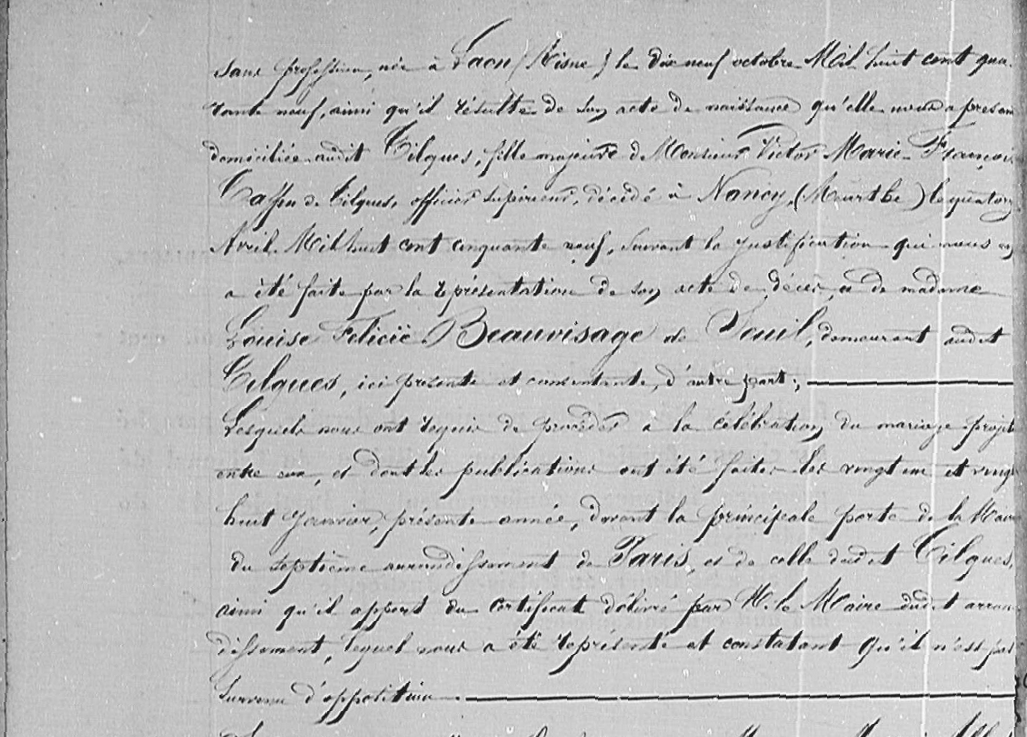 sans profession, née à Laon (Aisne) le dix neuf octobre Mil huit cent qua-
rante neuf, ainsi qu'il résulte de son acte de naissance qu'elle nous a présen
domiciliée audit Tilques, fille majeure de Monsieur Victor Marie François
Taffin de Tilques, officier supérieur, décédé à Nancy, (Meurthe) le quatorz
Avril Mil huit cent cinquante neuf, suivant la justification qui nous en
a été faite par la représentation de son acte de décès, et de madame
Louise Felicie Beauvisage de Seuil, demeurant audit
Tilques, ici présente et consentante, d'autre part;
Lesquels nous ont requis de procéder à la célébration du mariage projet
entre eux, et dont les publications ont été faites les vingt un et vingt
huit Janvier, présente année, devant la principale porte de la Mair
du septième arrondissement de Paris et de celle dudit Tilques,
ainsi qu'il appert du certificat délivré par M. le Maire dudit arron
dissement, lequel nous a été représenté et constatant qu'il n'est pas
survenu d'opposition.